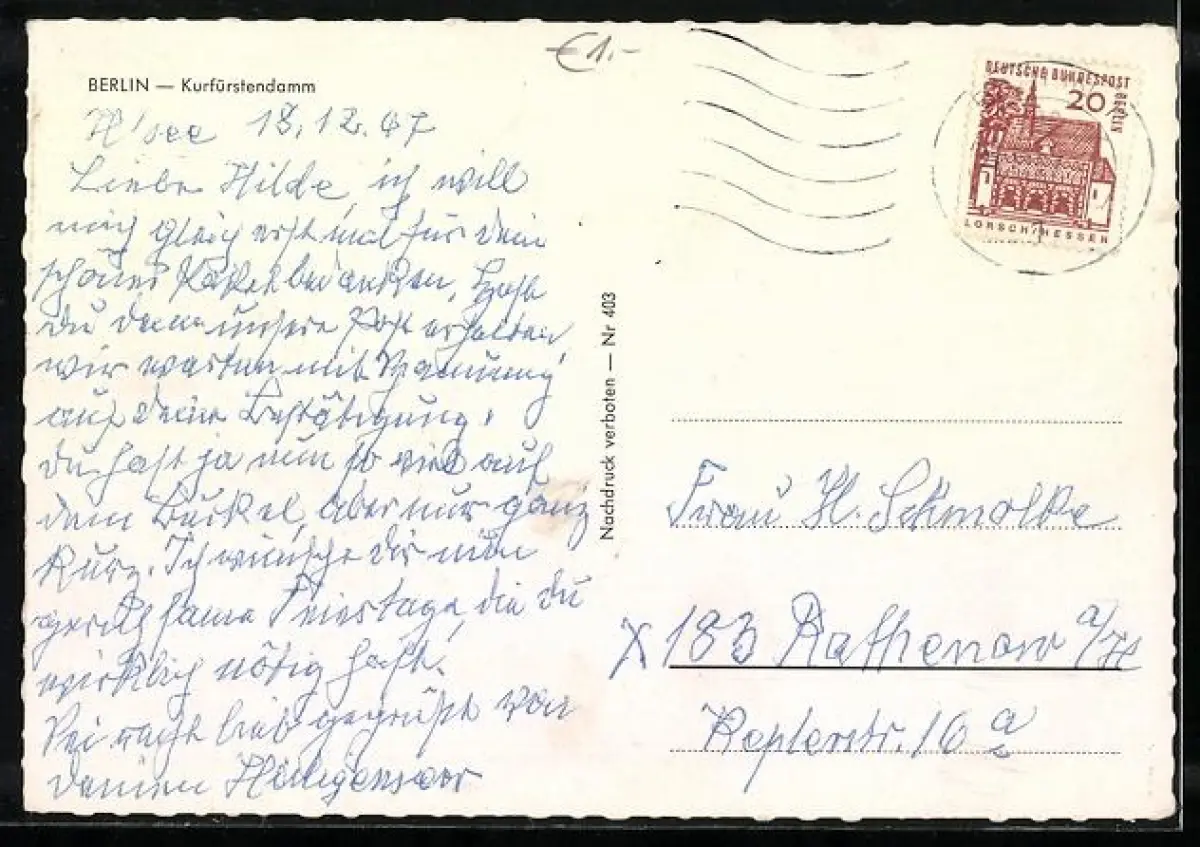 €1.-
BERLIN — Kurfürstendamm
18.12.67
Liebe Hilde, ich will
mich gleich erst mal für dein
schönes Paket bedanken. Hast
du denn unsere Post erhalten,
wir warten mit Spannung
auf deine Bestätigung.
Du hast ja nun so viel auf
dem Buckel, aber nur ganz
kurz. Ich wünsche dir nun
geruhsame Feiertage, die du
wirklich nötig hast.
Sei recht lieb gegrüßt von
deinen
Nachdruck verboten — Nr 403
DEUTSCHE BUNDESPOST
BERLIN
20
LORSCH/HESSEN
1
Frau H. Schmolke
X 183 Rathenow a/H
Keplerstr. 16 a